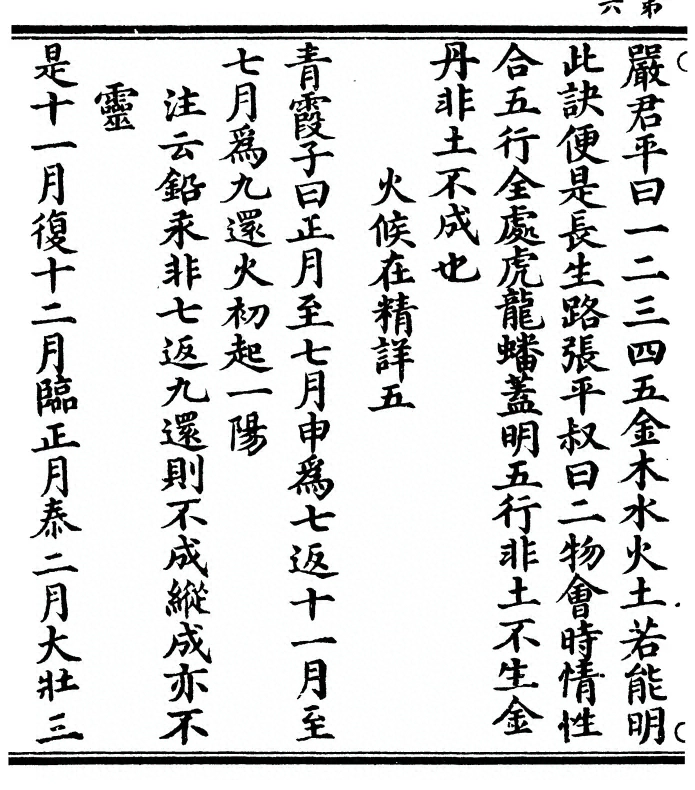 第六
嚴君平曰一二三四五金木水火土若能明
此訣便是長生路張平叔曰二物會時情性
合五行全處虎龍蟠蓋明五行非土不生金
丹非土不成也
火候在精詳五
青霞子曰正月至七月申爲七返十一月至
七月爲九還火初起一陽
注云鉛汞非七返九還則不成縱成亦不
靈
是十一月復十二月臨正月泰二月大壯三